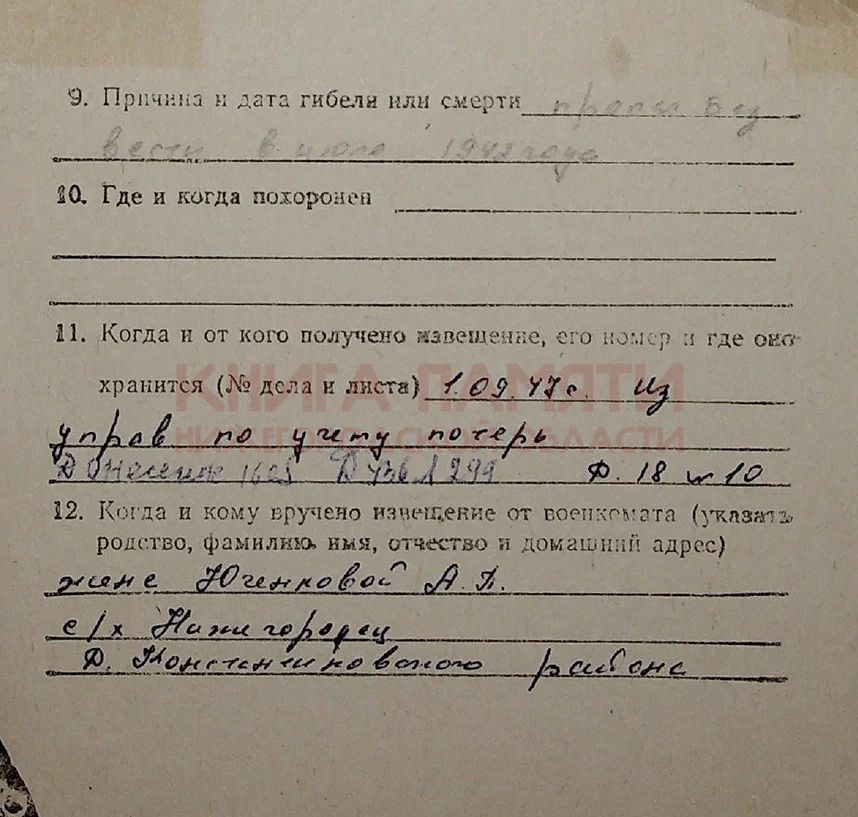 9. Причина и дата гибели или смерти пропал без
вести в июле 1942 года
10. Где и когда похоронен
11. Когда и от кого получено извещение, его номер и где оно
хранится (№ дела и листа) 1.09.47 г. Из
КНИГА ПАМЯТИ
управ по учету потерь
НИЖЕГОРОДСКОЙ ОБЛАСТИ
Л 299 Ф. 18 и 10
12. Когда и кому вручено извещение от военкомата (указать
родство, фамилию, имя, отчество и домашний адрес)
жене Юченковой А. П.
с/х Нижегородец
Д. Константиновского района